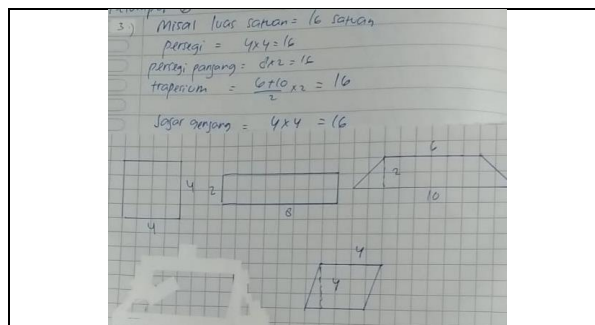 3.) Misal luas satuan = 16 satuan
persegi = 4x4 = 16
persegi panjang = 8x2 = 16
trapesium = 6+10/2 x2 = 16
Jajar genjang = 4x4 = 16
4
4
2
8
6
2
10
4
4